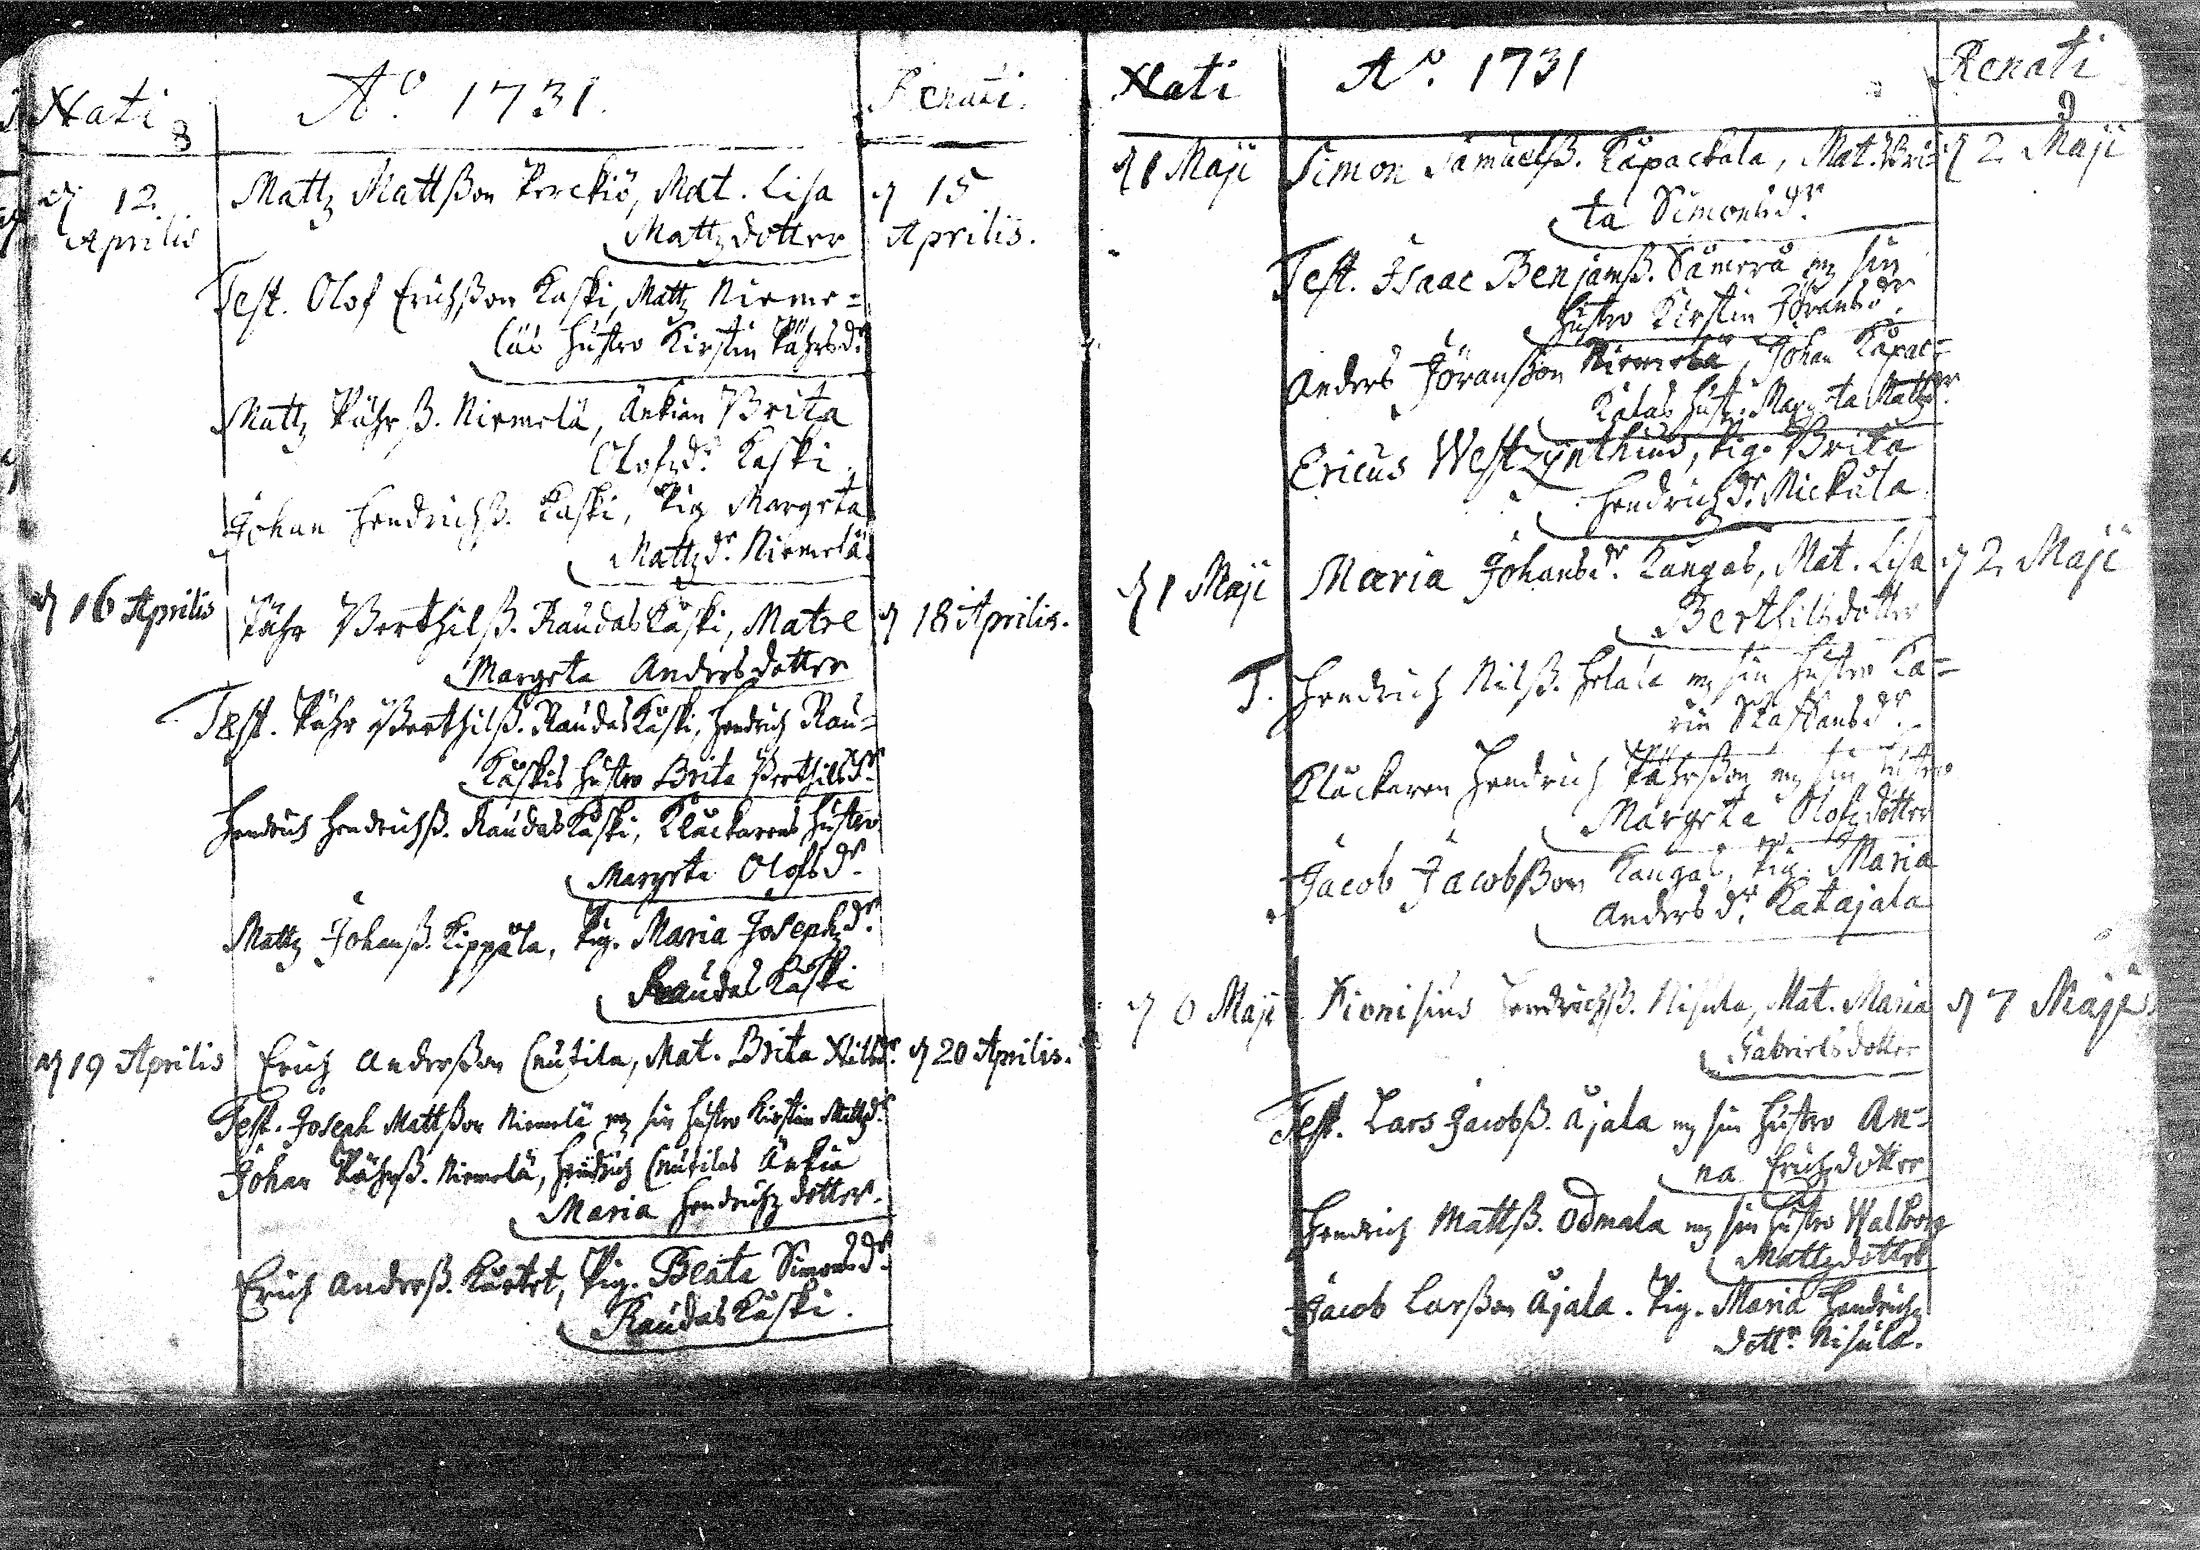 Nati 8 Aº. 1731. Renati.
d 12. Aprilis Mattz Mattßon Perckiö, Mat. Lisa d 15 Aprilis.
Mattzdotter
Test. Olof Erichßon Kaski, Mattz Nieme=
läs hustro Kirstin Påhrsdr.
Mattz Påhrß. Niemelä, Änkian Brita
Olofzdr. Kaski.
Johan Hendrichß. Kaski, Pig. Margeta
Mattzdr. Niemelä.
d 16 Aprilis Påhr Berthilß. Raudaskåski, Matre d 18 Aprilis.
Margeta Andersdotter
Test. Påhr Berthilß. Raudaskåski, Hendrich Rau=
kåskis hustro Brita Berthilsdr.
Hendrich Hendrichß. Raudaskåski, Klåckarens hustro
Margeta Olofsdr.
Mattz Johanß. Kippåla, Pig. Maria Josephzdr.
Raudaskåski
d 19 Aprilis Erich Anderßon Cnutila, Mat. Brita Nilsdr. d 20 Aprilis.
Test. Joseph Mattßon Niemelä m sin hustro Kirstin Mattzdr.
Johan Påhrß. Niemelä, Hendrich Cnutilas Änkia
Maria Hendrichzdotter.
Erich Anderß. Kurtet, Pig. Beata Simonsdr.
Raudaskåski.
Nati Aº. 1731 Renati 9
d 1 Maji Simon Samuelß. Kåpackala, Mat. Bri= d 2 Maji
ta Simonsdr.
Test. Isaac Benjamß. Såmerå m sin
hustro Kirstin Jöransdr.
Anders Jöranßon Niemelä, Johan Kåpac=
kalas hust. Margeta Mattzdr.
Ericus Westzynthius, Pig. Brita
Hendrichzdr. Mickula.
d 1 Maji Maria Johansdr. Kangas, Mat. Lisa d 2. Maji
Berthilsdotter
T. Hendrich Nilß. Helala m sin hustro Ka=
rin Staffansdr.
Klåckaren Hendrich Påhrßon m sin hustro
Margeta Olofzdotter
Jacob Jacobßon Kangas, Pig. Maria
Andersdr. Katajala
d 6 Maji Dionisius Hendrichß. Nisula, Mat. Maria d 7 Maji
Gabrielsdotter
Test. Lars Jacobß. Åjala m sin hustro An=
na Erichzdotter
Hendrich Mattß. Odmala m sin hustro Walborg
Mattzdotter
Jacob Larßon Åjala. Pig. Maria Hendrichz
dottr. Nisula.